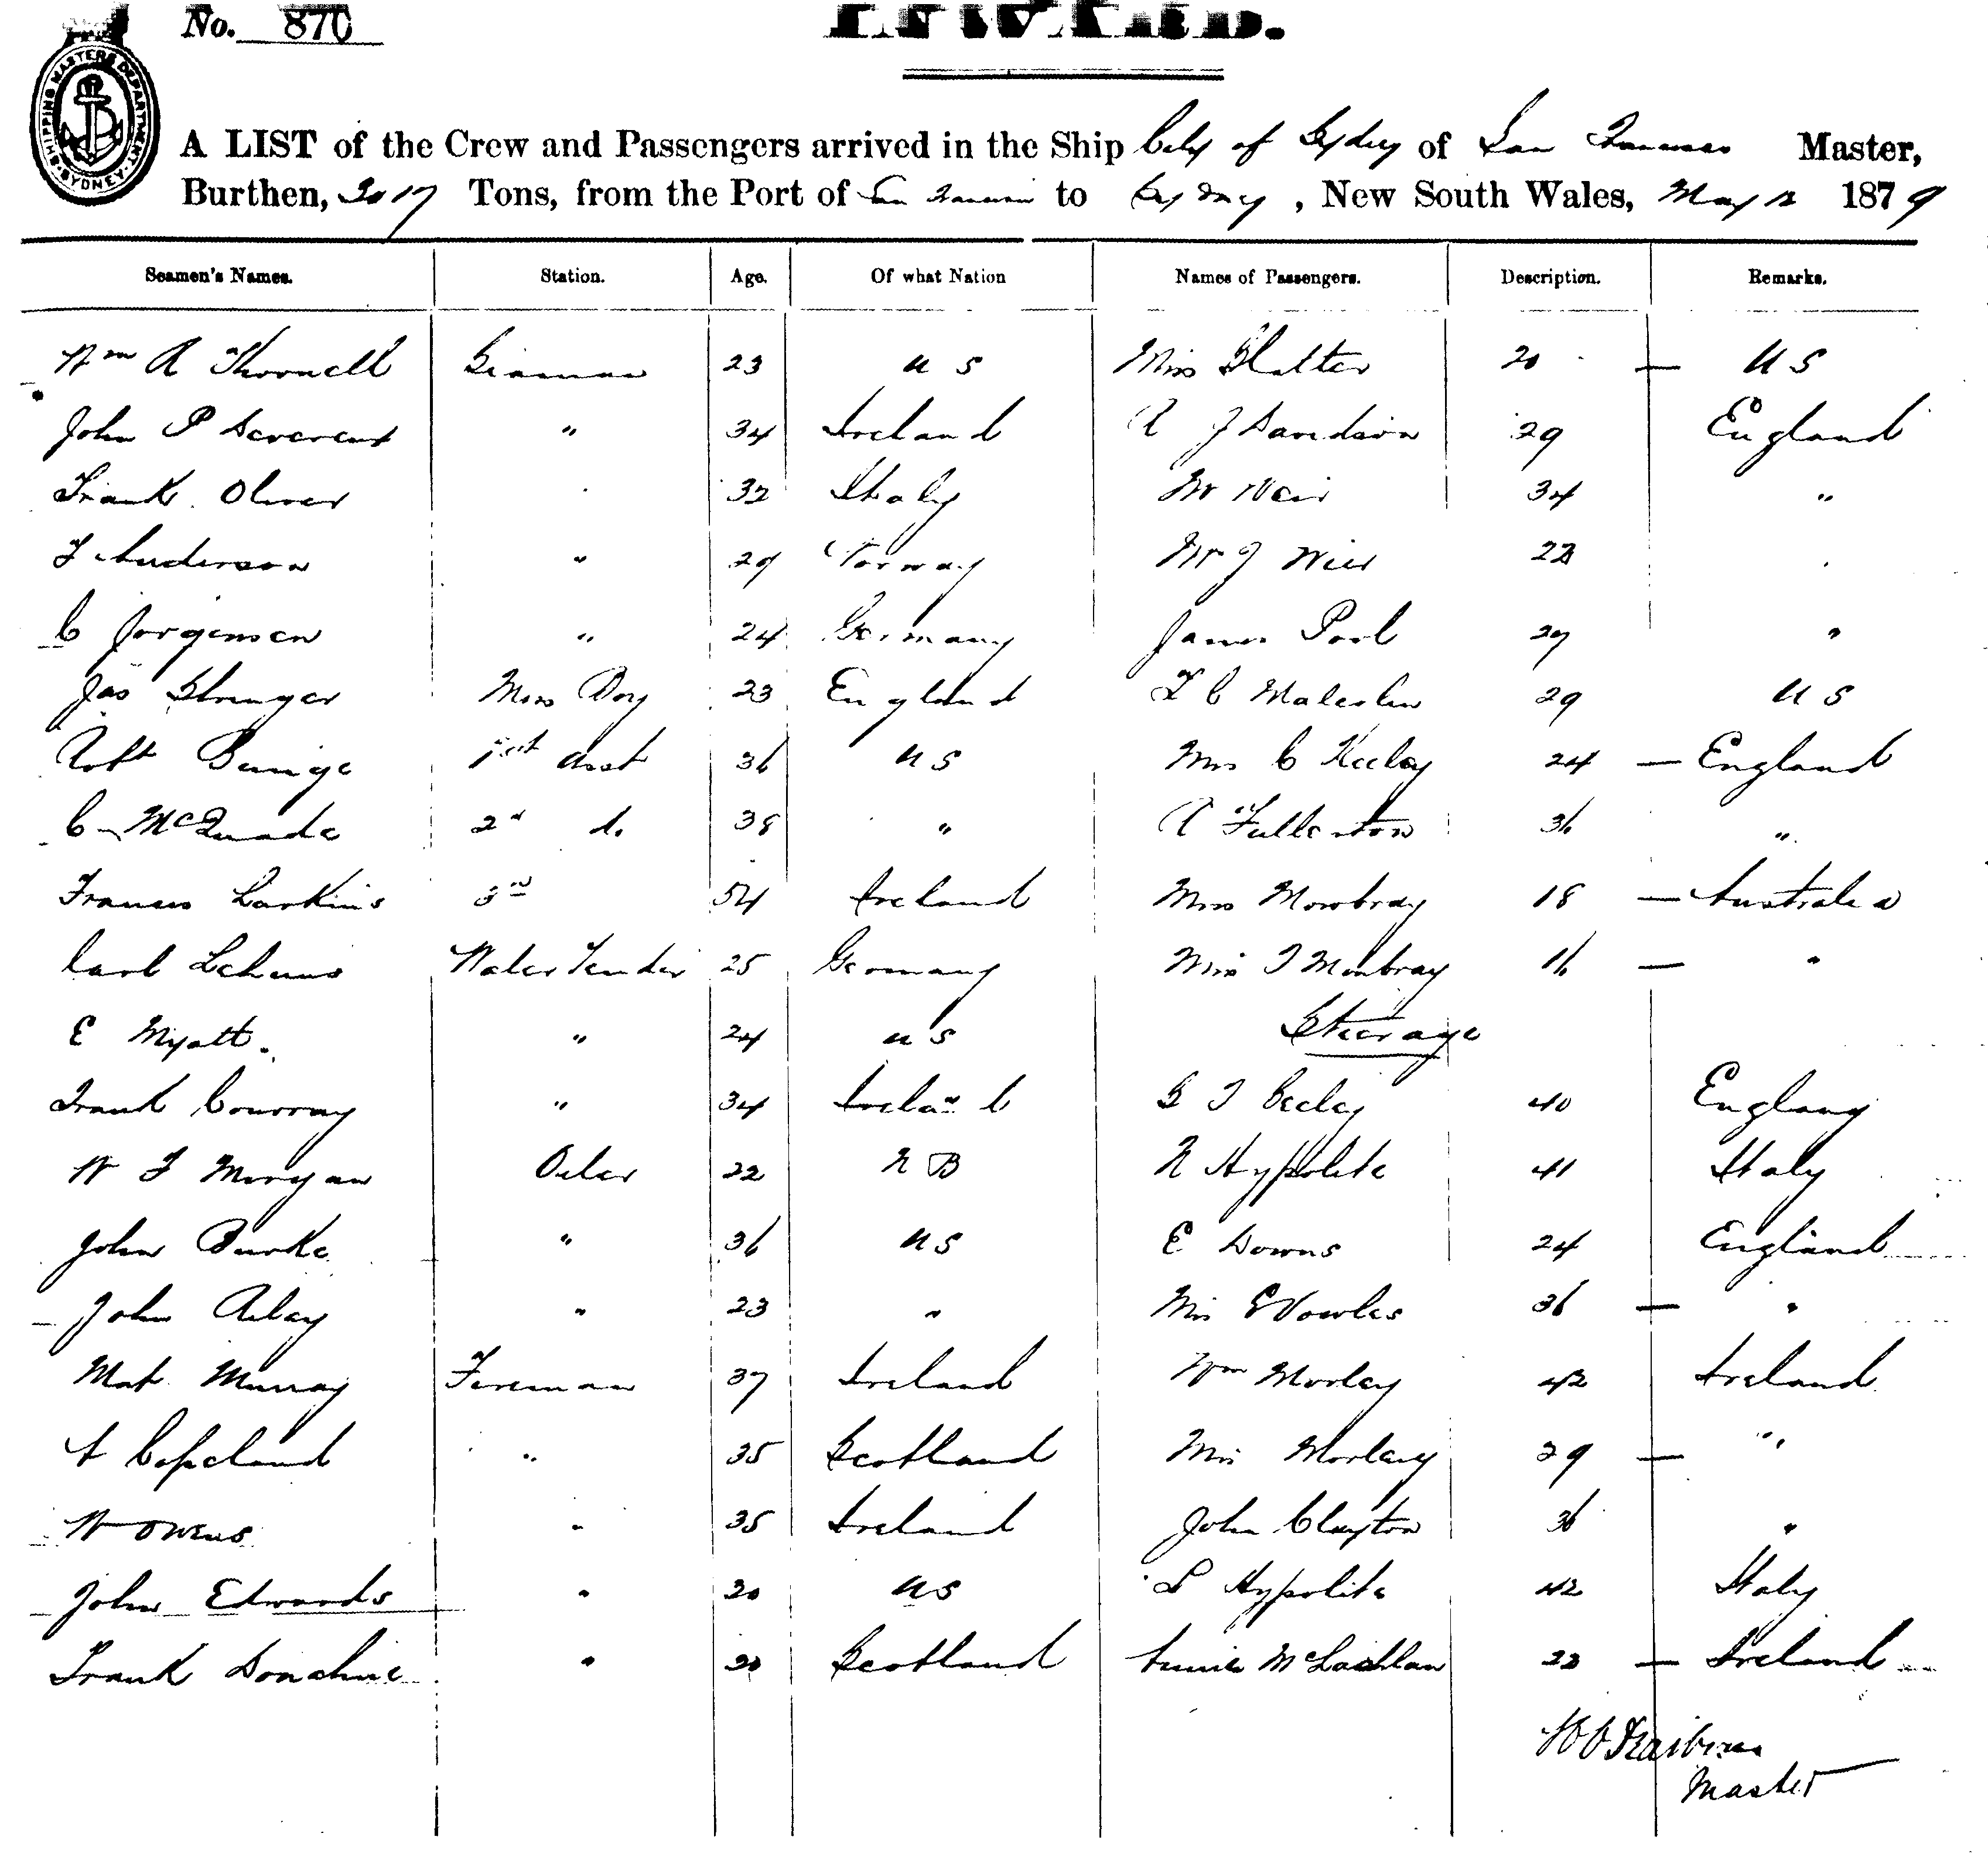 No. 870
INWARD.
SHIPPING MASTERS DEPARTMENT SYDNEY
A LIST of the Crew and Passengers arrived in the Ship City of Sydney of San Francisco Master,
Burthen, 3017 Tons, from the Port of San Francisco to Sydney, New South Wales, May 12 1879
Seamen's Names. Station. Age. Of what Nation Names of Passengers. Description. Remarks.
Wm A Thornell Seaman 23 U S Miss Slatter 20 — U S
John P Devereux " 34 Ireland A J Davidson 29 England
Frank Oliver 32 Italy Mr Weir 34 "
F Anderson " 29 Norway Mr J Weir 22
C Jorgensen " 24 Germany James Pool 29 "
Jas Stringer Mess Boy 23 England L C Malcolm 29 U S
Robt 1st Asst 36 U S Mrs C Keeley 24 — England
C McQuade 2d do 38 " A Fullerton 36 "
Francis Larkins 3rd 54 Ireland Miss Mowbray 18 — Australia
Carl Lehms Water Tender 25 Germany Miss J Mowbray 16 — "
E Myatt. " 24 U S Steerage
Frank Conway " 34 Ireland G J Ceeley 40 England
W F Morgan Oiler 22 N B N Hypolite 41 Italy
John Burke " 36 U S E Downs 24 England
John " 23 " E Vowles 36 — "
Mat Murray Fireman 37 Ireland Wm Morley 42 Ireland
A Copeland " 35 Scotland Mrs Morley 29 — "
W Owens " 35 Ireland John Clayton 36 "
John Edwards " 30 U S L Hypolite 42 Italy
Frank Donahue " 20 Scotland Annie McLachlan 22 — Ireland
Master